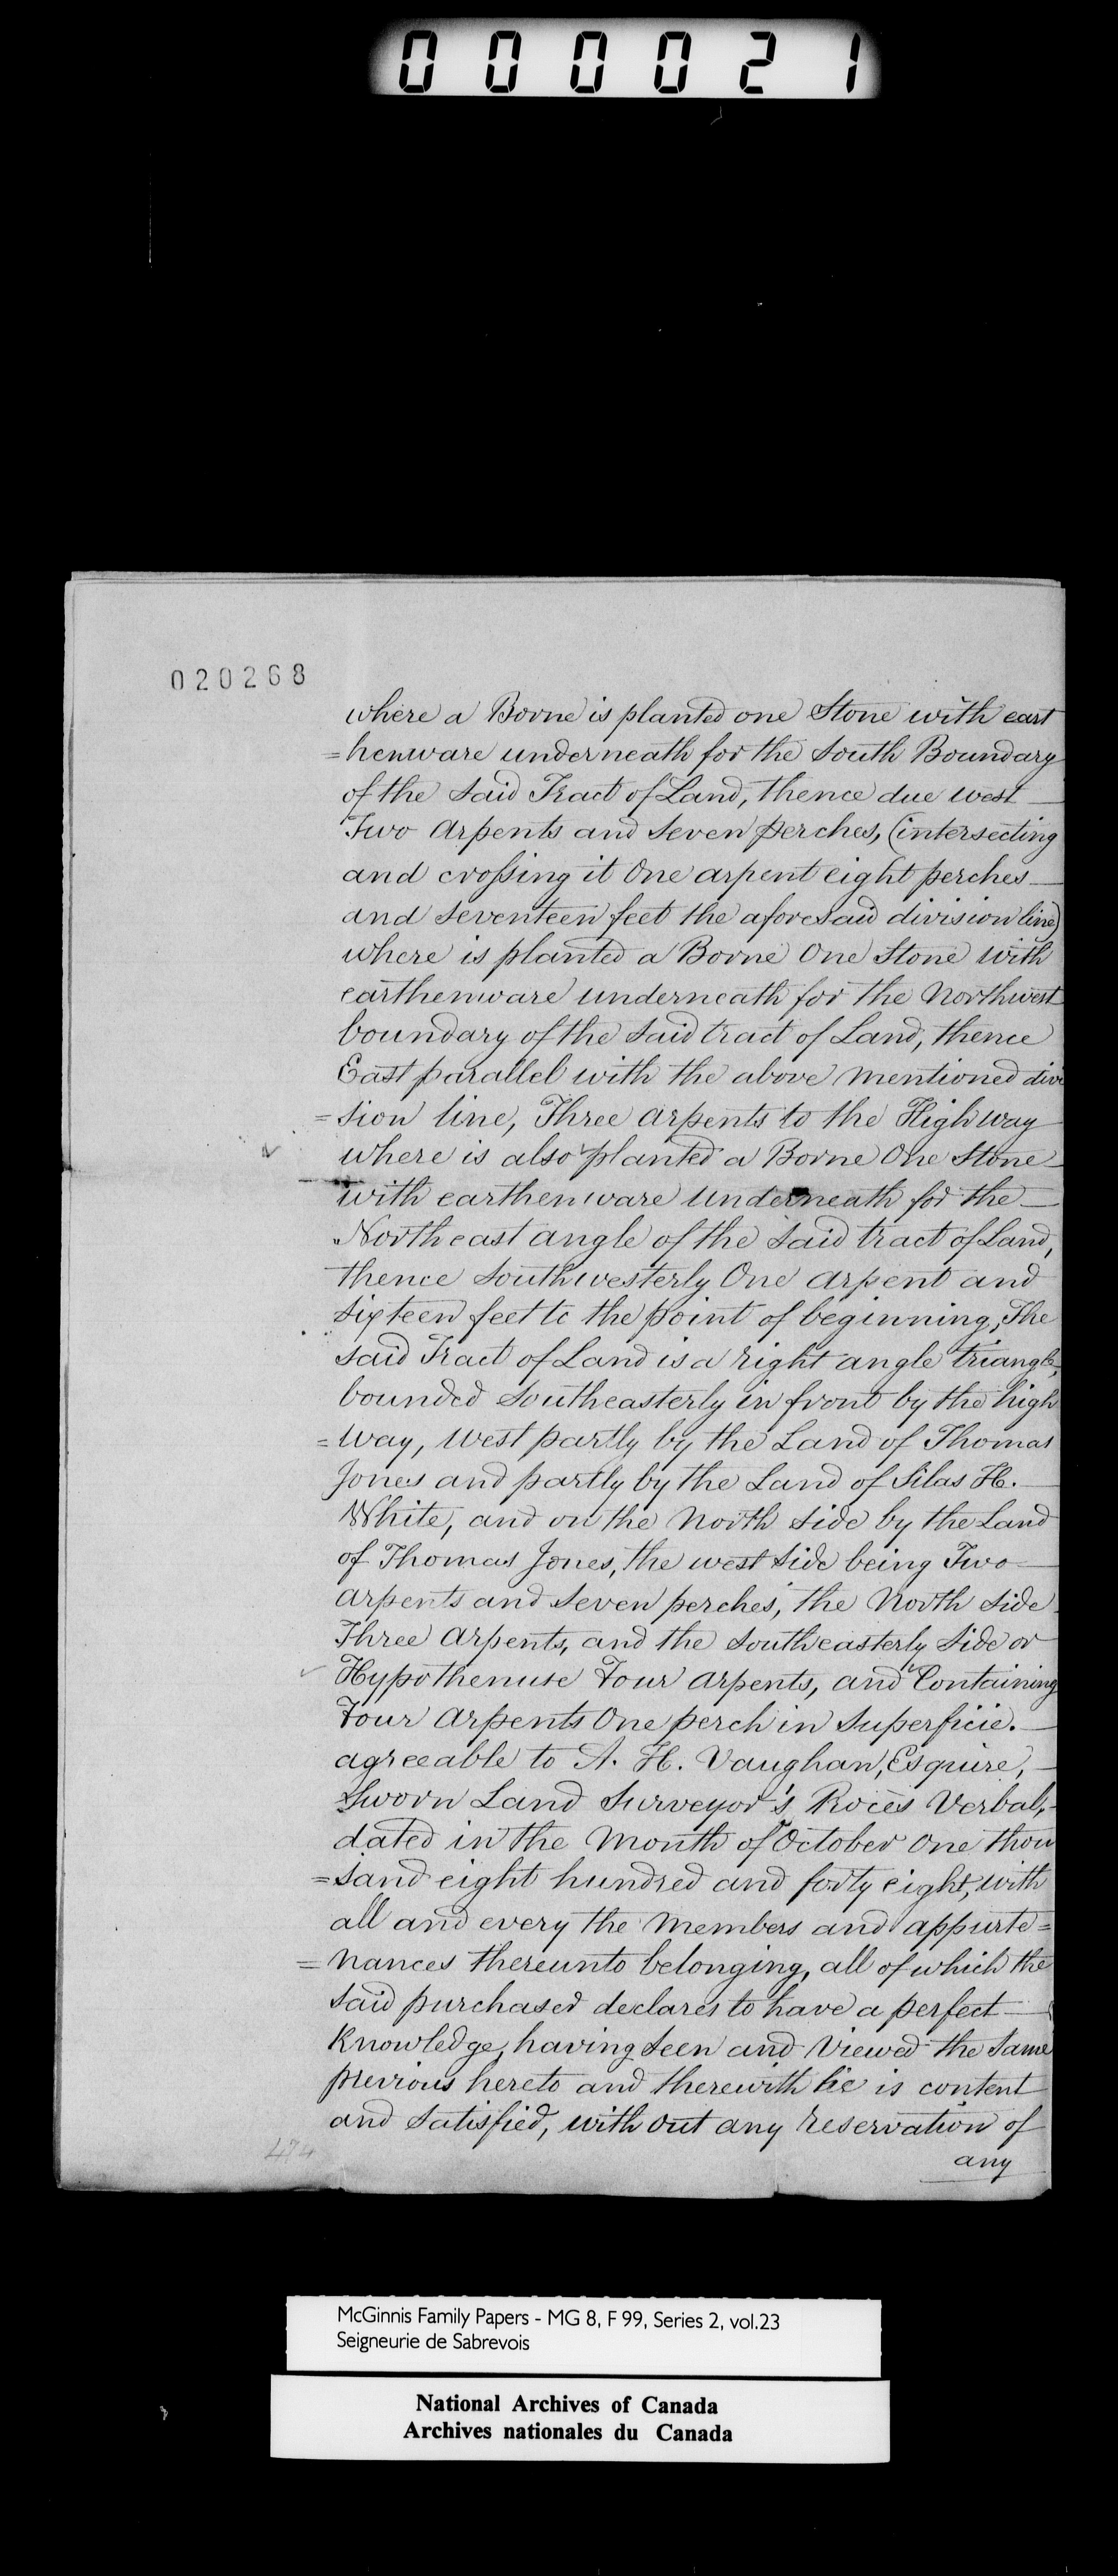 000021
020268
where a Borne is planted one Stone with eart
=henware underneath for the South Boundary
of the Said Tract of Land, thence due west
Two Arpents and Seven perches, (intersecting
and crossing it One arpent eight perches
and Seventeen feet the aforesaid division line)
where is planted a Borne One Stone with
earthenware underneath for the Northwest
boundary of the Said tract of Land, thence
East parallel with the above mentioned divi
=sion line, Three Arpents to the Highway
where is also planted a Borne One Stone
with earthenware underneath for the
Northeast angle of the Said tract of Land,
thence Southwesterly One Arpent and
Sixteen feet to the point of beginning, The
Said Tract of Land is a right angle triangle,
bounded Southeasterly in front by the high
=way, West partly by the Land of Thomas
Jones and partly by the Land of Silas H.
White, and on the North Side by the Land
of Thomas Jones, the west Side being Two
Arpents and Seven perches, the North Side
Three Arpents, and the Southeasterly Side or
Hypothenuse Four Arpents, and Containing
Four Arpents One perch in Superficie.
agreeable to A. H. Vaughan, Esquire,
Sworn Land Surveyor's Procès Verbal,
dated in the Month of October One thou
=sand eight hundred and forty eight, with
all and every the Members and appurte=
=nances thereunto belonging, all of which the
Said purchaser declares to have a perfect
Knowledge, having Seen and Viewed the Same
previous hereto and therewith he is content
and Satisfied, with out any reservation of
any
474
McGinnis Family Papers - MG 8, F 99, Series 2, vol.23
Seigneurie de Sabrevois
National Archives of Canada
Archives nationales du Canada